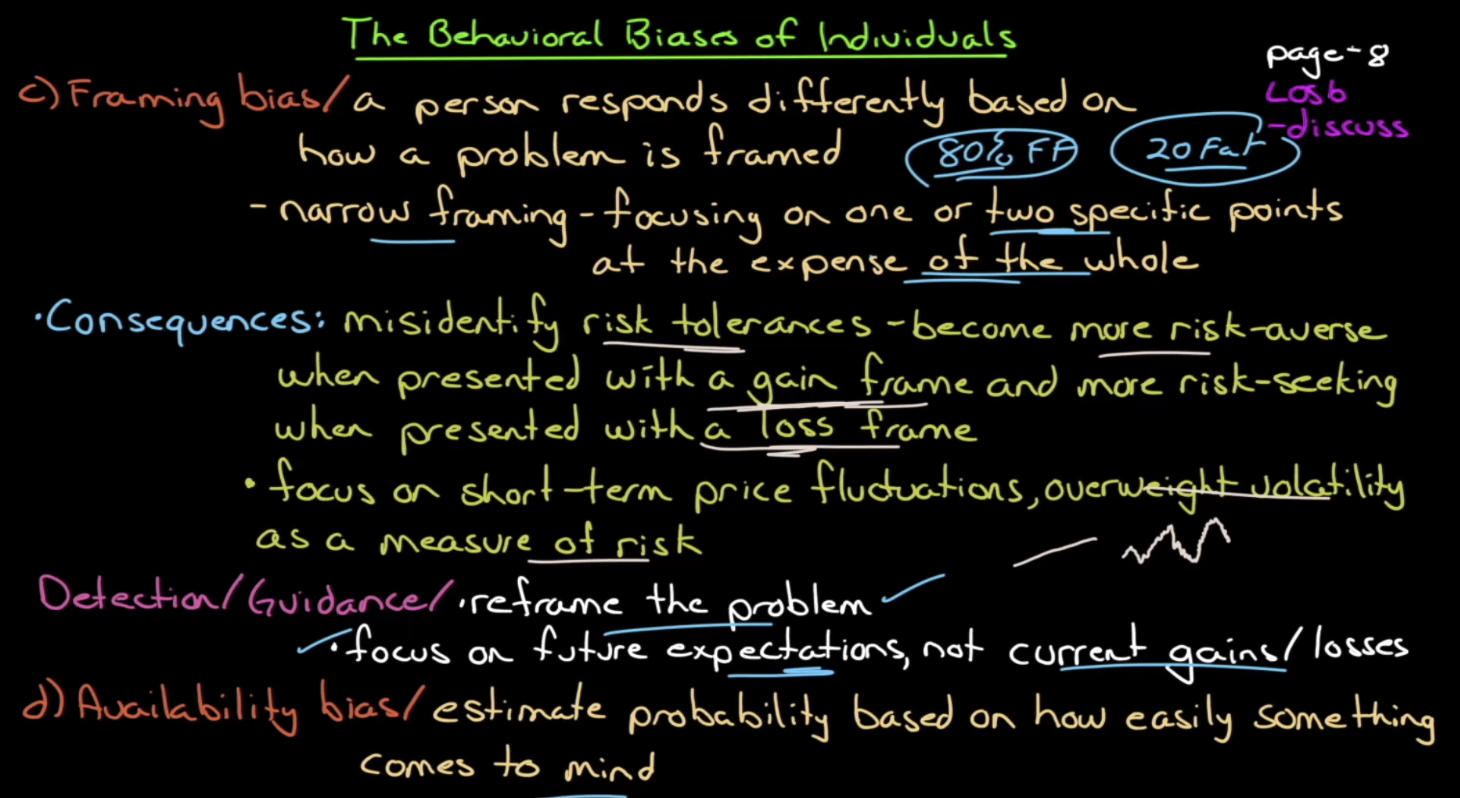 The Behavioral Biases of Individuals
page-8
LOS b
-discuss
c) Framing bias/ a person responds differently based on
how a problem is framed
80% FF
20 Fat
- narrow framing - focusing on one or two specific points
at the expense of the whole
• Consequences: misidentify risk tolerances - become more risk-averse
when presented with a gain frame and more risk-seeking
when presented with a loss frame
• focus on short-term price fluctuations, overweight volatility
as a measure of risk
Detection/Guidance/ • reframe the problem
• focus on future expectations, not current gains/losses
d) Availability bias/ estimate probability based on how easily something
comes to mind